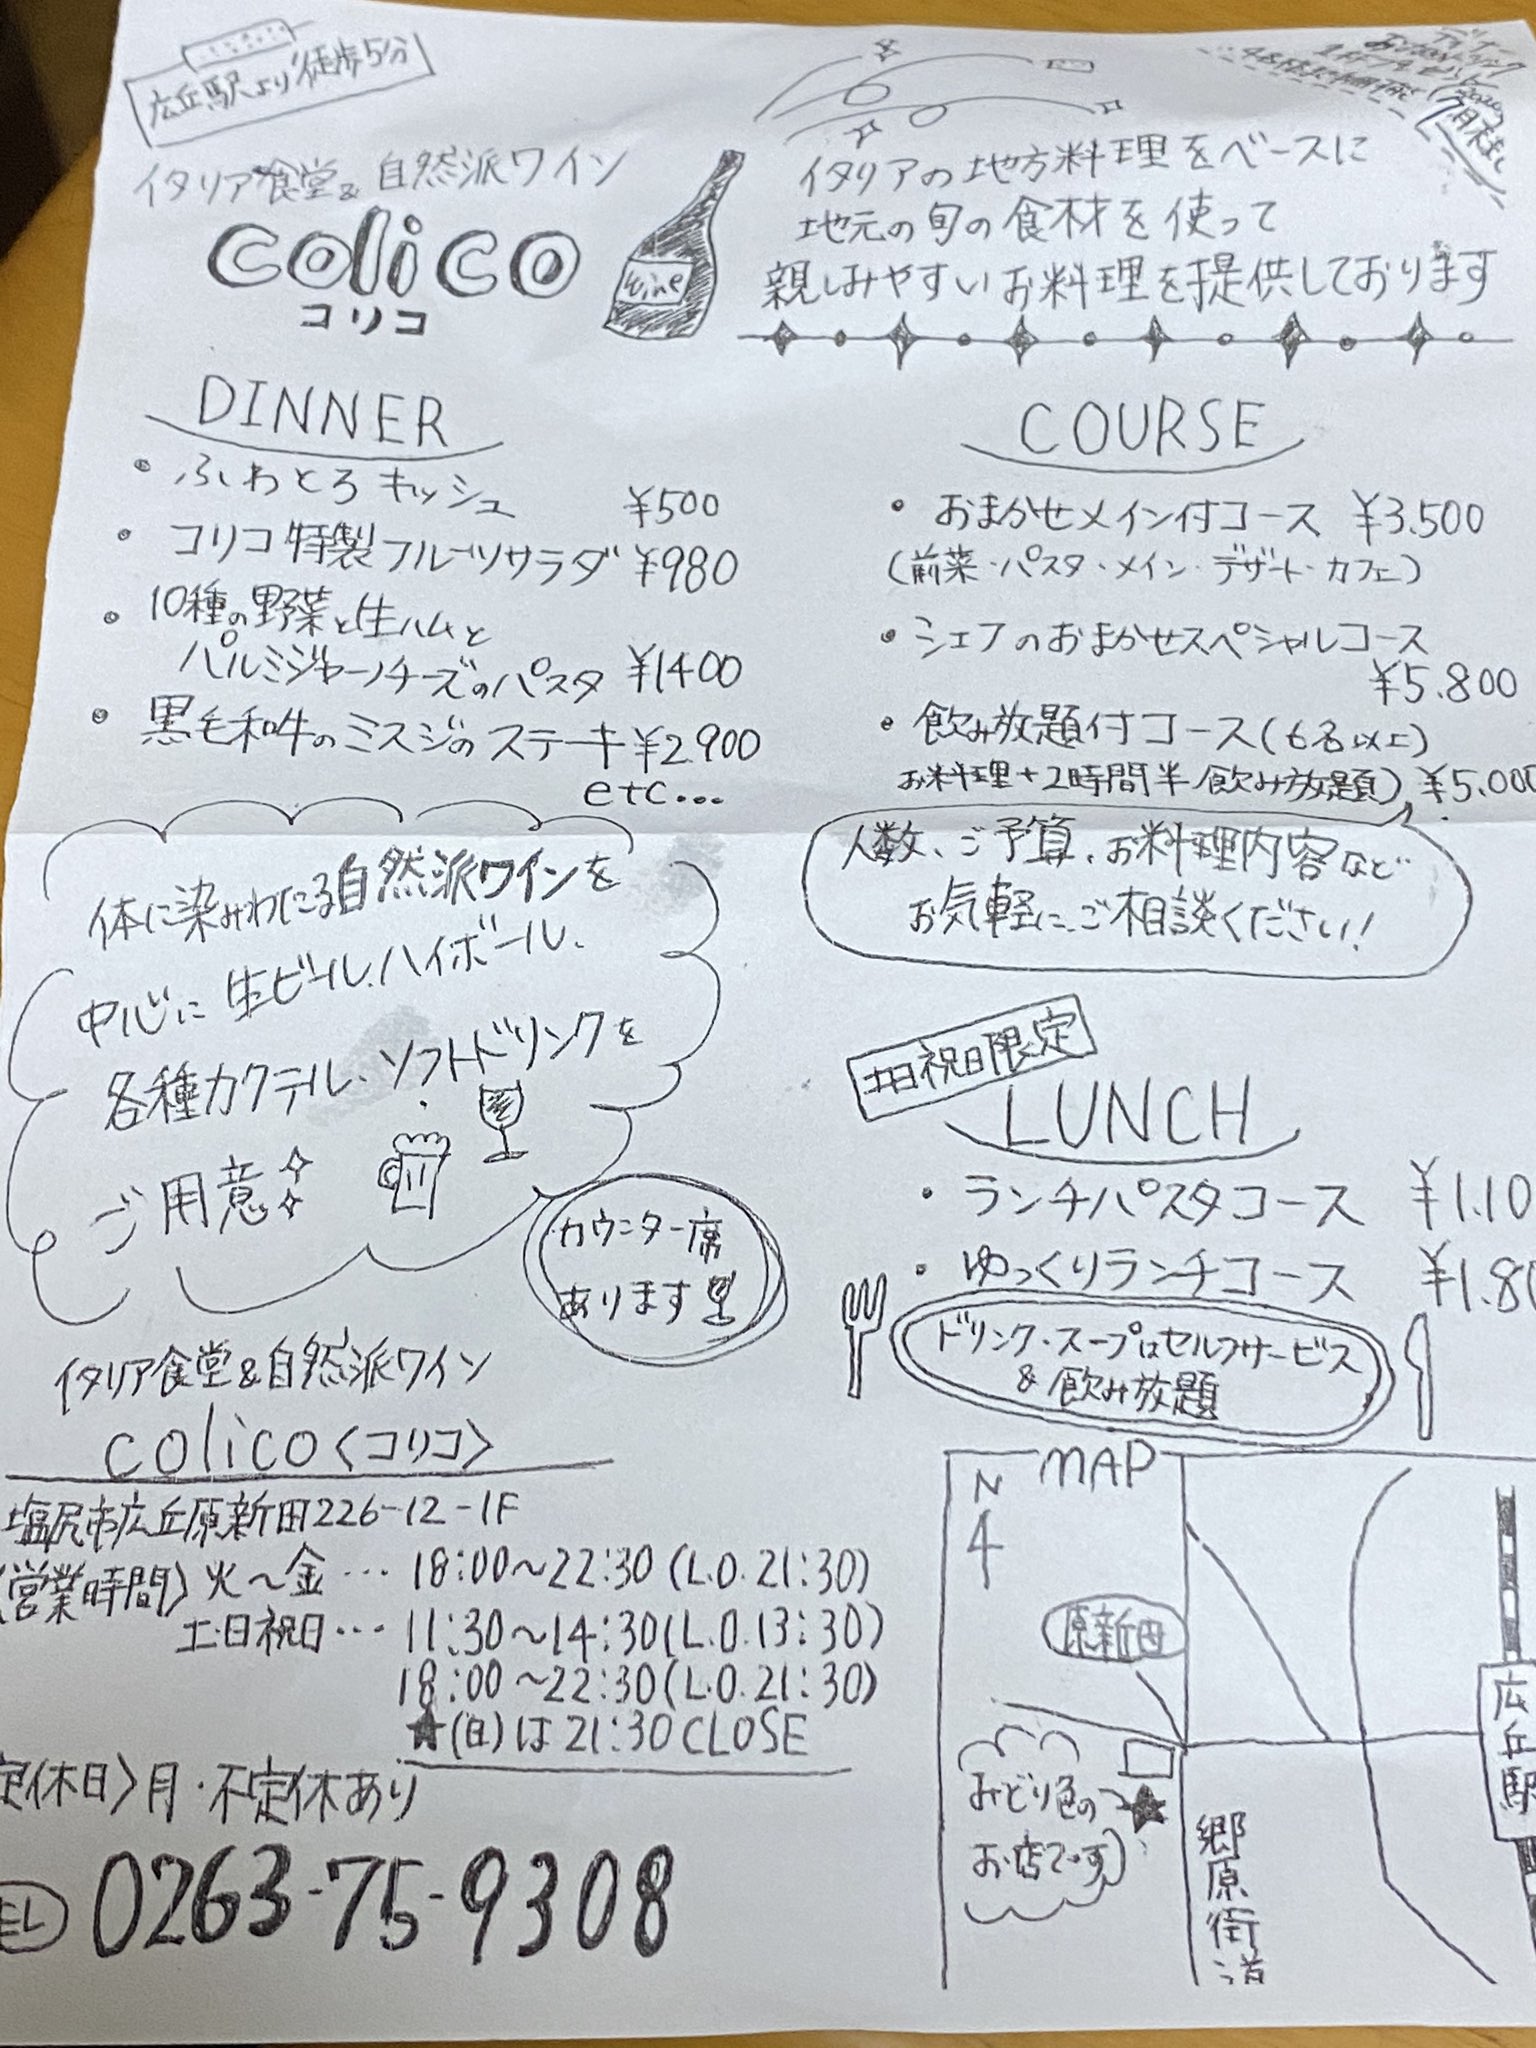 広丘駅より徒歩5分
イタリア食堂&自然派ワイン
colico
コリコ
wine
ディナー
4名様まで利用可能
7月末まで
イタリアの地方料理をベースに
地元の旬の食材を使って
親しみやすいお料理を提供しております
DINNER
・ふわとろキッシュ ¥500
・コリコ特製フルーツサラダ ¥980
・10種の野菜と生ハムと
パルミジャーノチーズのパスタ ¥1400
・黒毛和牛のミスジのステーキ ¥2.900
etc...
COURSE
・おまかせメイン付コース ¥3.500
(前菜・パスタ・メイン・デザート・カフェ)
・シェフのおまかせスペシャルコース
¥5.800
・飲み放題付コース(6名以上)
お料理+2時間半飲み放題) ¥5.000
人数、ご予算、お料理内容など
お気軽にご相談ください!
体に染みわたる自然派ワインを
中心に生ビール、ハイボール、
各種カクテル、ソフトドリンクを
ご用意
カウンター席
あります
土日祝日限定
LUNCH
・ランチパスタコース ¥1.10
・ゆっくりランチコース ¥1.80
ドリンク・スープはセルフサービス
&飲み放題
イタリア食堂&自然派ワイン
colico〈コリコ〉
塩尻市広丘原新田226-12-1F
〈営業時間〉火〜金…18:00〜22:30(L.O.21:30)
土・日祝日…11:30〜14:30(L.O.13:30)
18:00〜22:30(L.O.21:30)
★(日)は21:30CLOSE
定休日〉月・不定休あり
EL 0263-75-9308
MAP
N
原新田
広丘駅
みどり色の
お店です
郷原街道